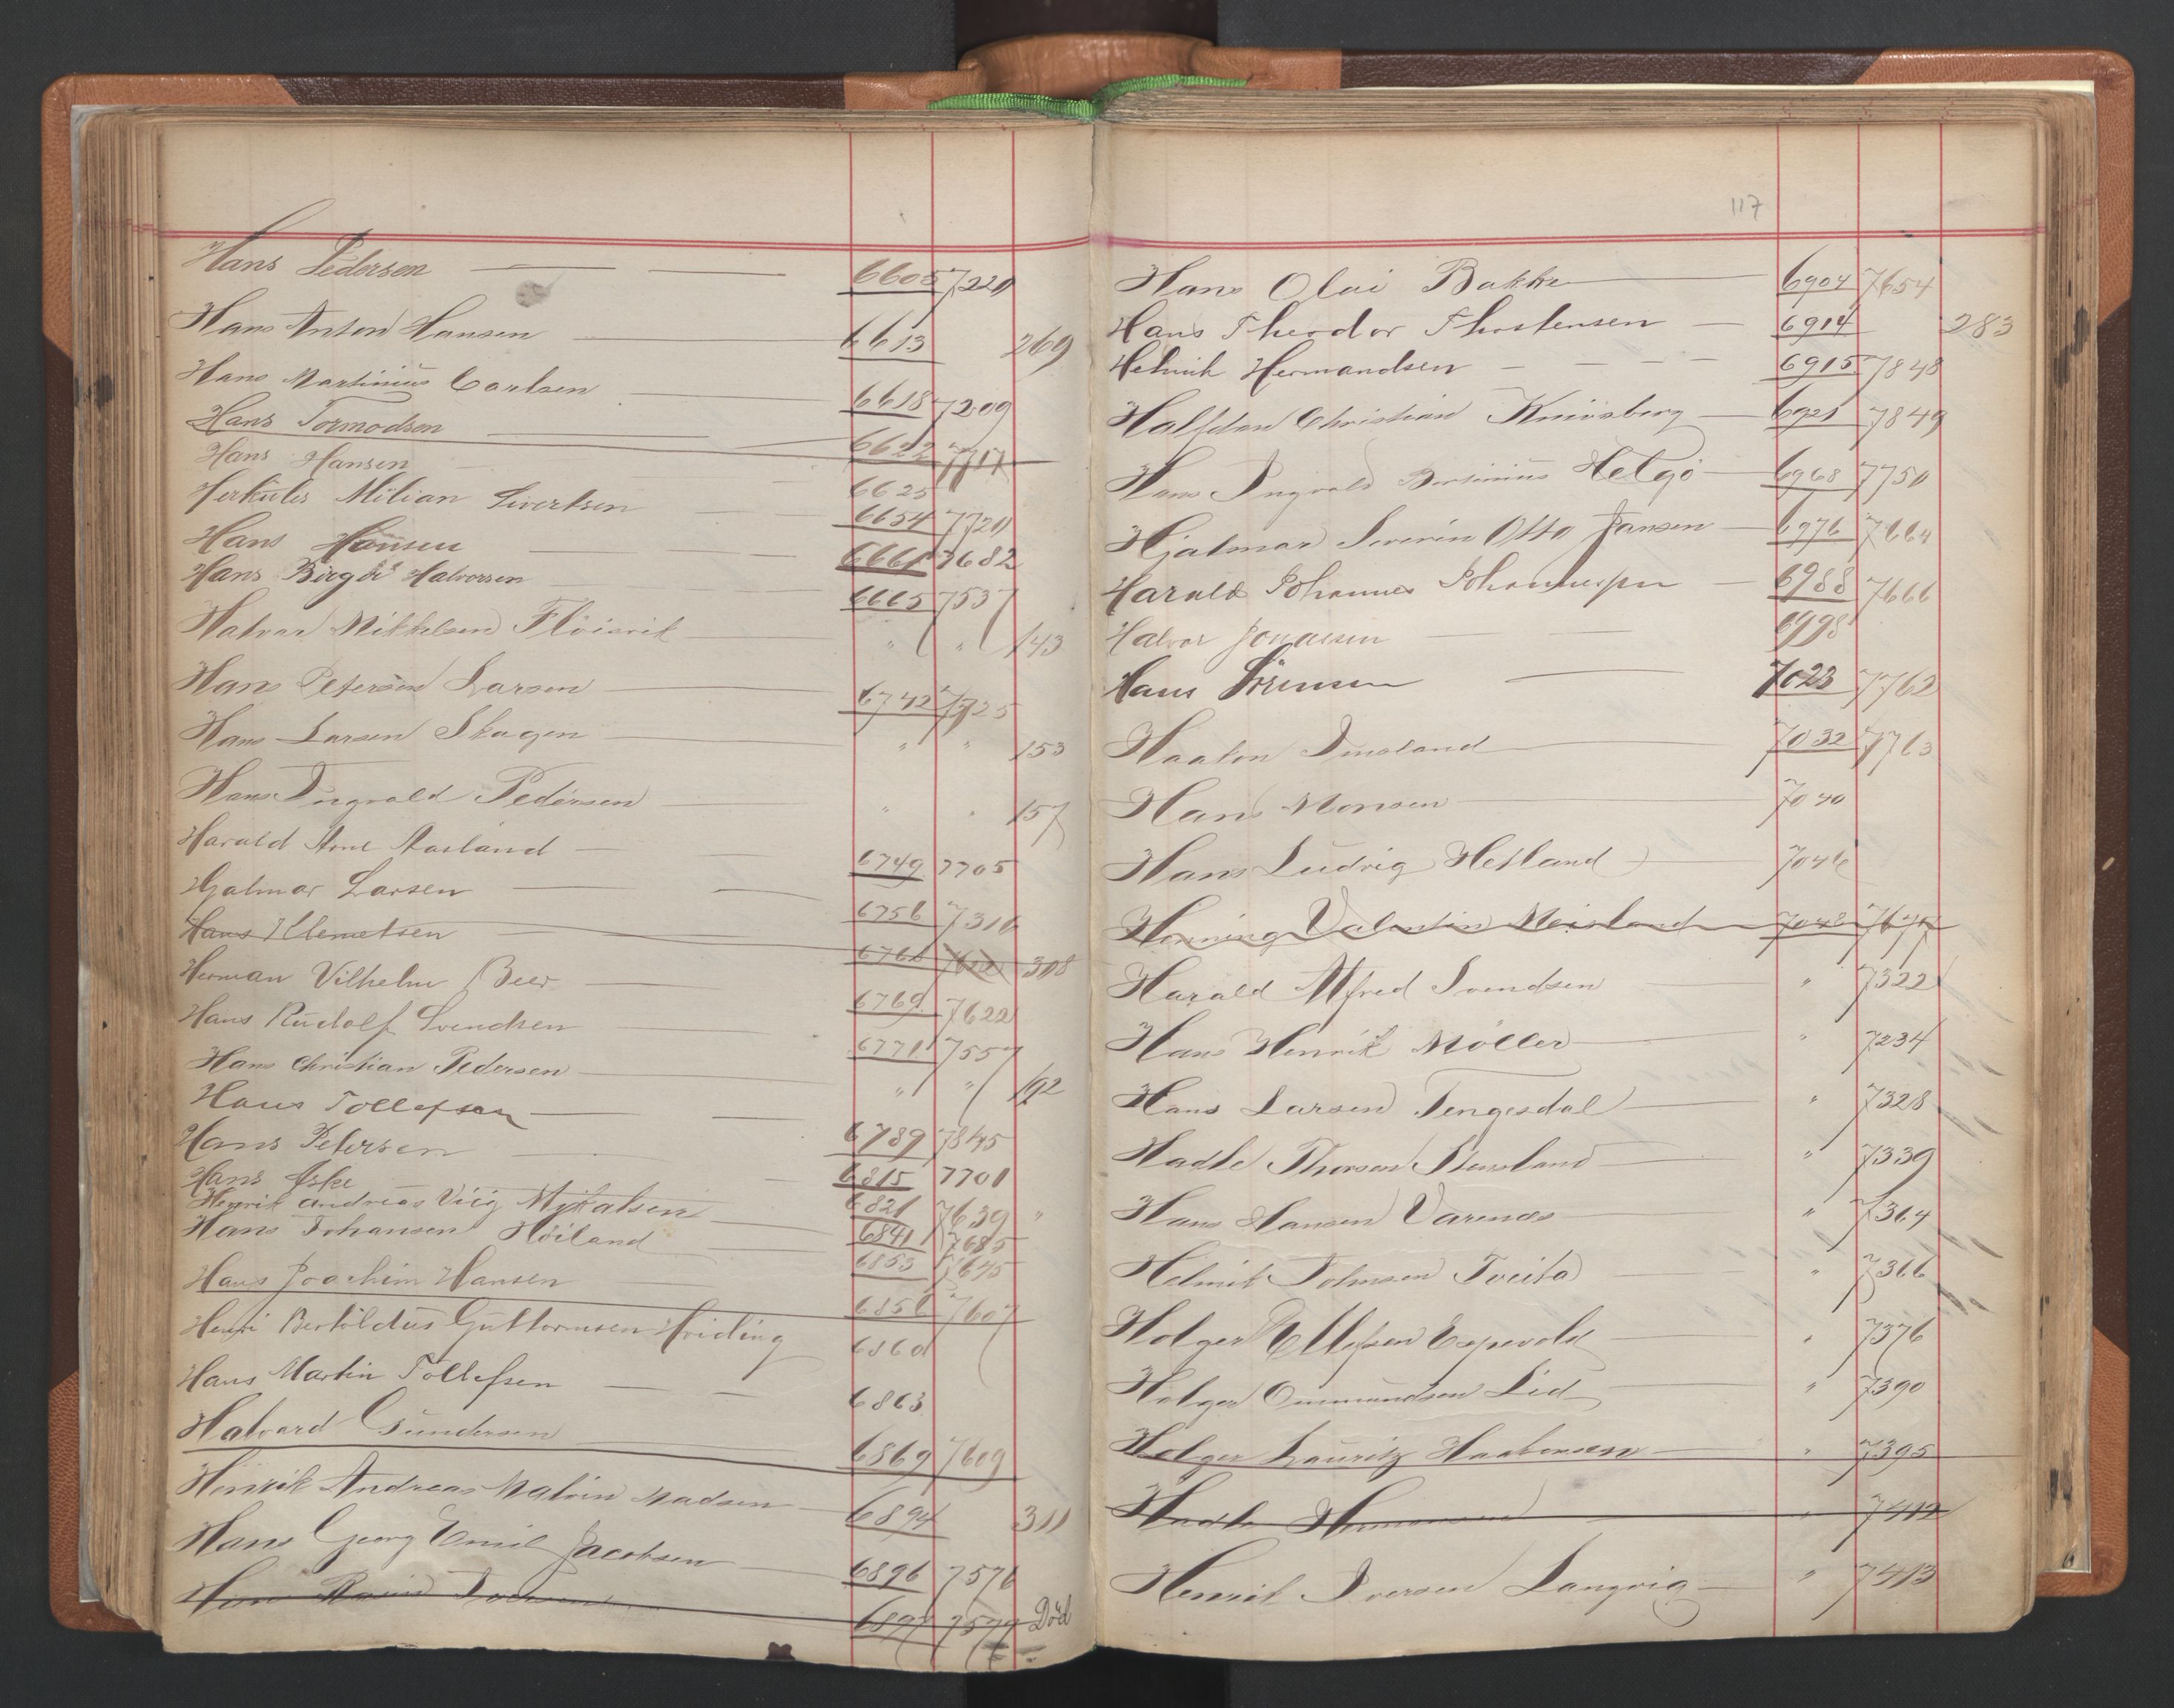 Hans Pedersen 6605 7220
Hans Anton Hansen 6613 269
Hans Martinius Carlsen 6618 7209
Hans Tormodsen 6622 7717
Hans Hansen 6625
Herkules Milian Sivertsen 6654 7720
Hans Hansen 6661 7682
Hans Birger Halvorsen 6665 7537
Halvor Mikkelsen Flöisvik " " 143
Hans Petersen Larsen 6742 7725
Hans Larsen Skagen " " 153
Hans Ingvald Pedersen " " 157
Harald Arne Aasland 6749 7705
Hjalmar Larsen 6756 7316
Hans Klemetsen 6761 308
Herman Vilhelm Beer 6769 7622
Hans Rudolf Svendsen 6771 7557
Hans Christian Pedersen " " 192
Hans Tollefsen 6789 7845
Hans Petersen 6815 7701
Hans Iske 6821 7639 "
Henrik Andreas Viig Mikalsen 6841 7685
Hans Johansen Höiland 6853 7645
Hans Joachim Hansen 6856 7607
Henri Bertoldus Guttormsen Hviding 6860
Hans Martin Tollefsen 6863
Halvard Gundersen 6869 7609
Henrik Andreas Malvin Madsen 6894 311
Hans Georg Emil Jacobsen 6896 7576
6897 7579 Död
117
Hans Olai Bakke 6904 7654
Hans Theodor Thostensen 6914 283
Helmik Hermandsen 6915 7848
Halfdan Christian Knivsberg 6921 7849
Hans Ingvald Bertinius Helgö 6968 7750
Hjalmar Severin Otto Jansen 6976 7664
Harald Johannes Johannessen 6988 7666
Halvor Jonassen 6998
Hans Sörensen 7023 7762
Haakon Imsland 7032 7763
Hans Monsen 7040
Hans Ludvig Hetland 7046
Henning Valentin Meisland 7048
Harald Alfred Svendsen " 7322
Hans Henrik Möller " 7234
Hans Larsen Tengesdal " 7328
Hadle Thorsen Stensland " 7339
Hans Hansen Varenæs " 7364
Helmik Tolmsen Tveita " 7366
Holger Ellefsen Espevold " 7376
Holger Ommundsen Lid " 7390
Holger Lauritz Haakonsen " 7395
Hadle " 7412
Henrik Iversen Langvig " 7413